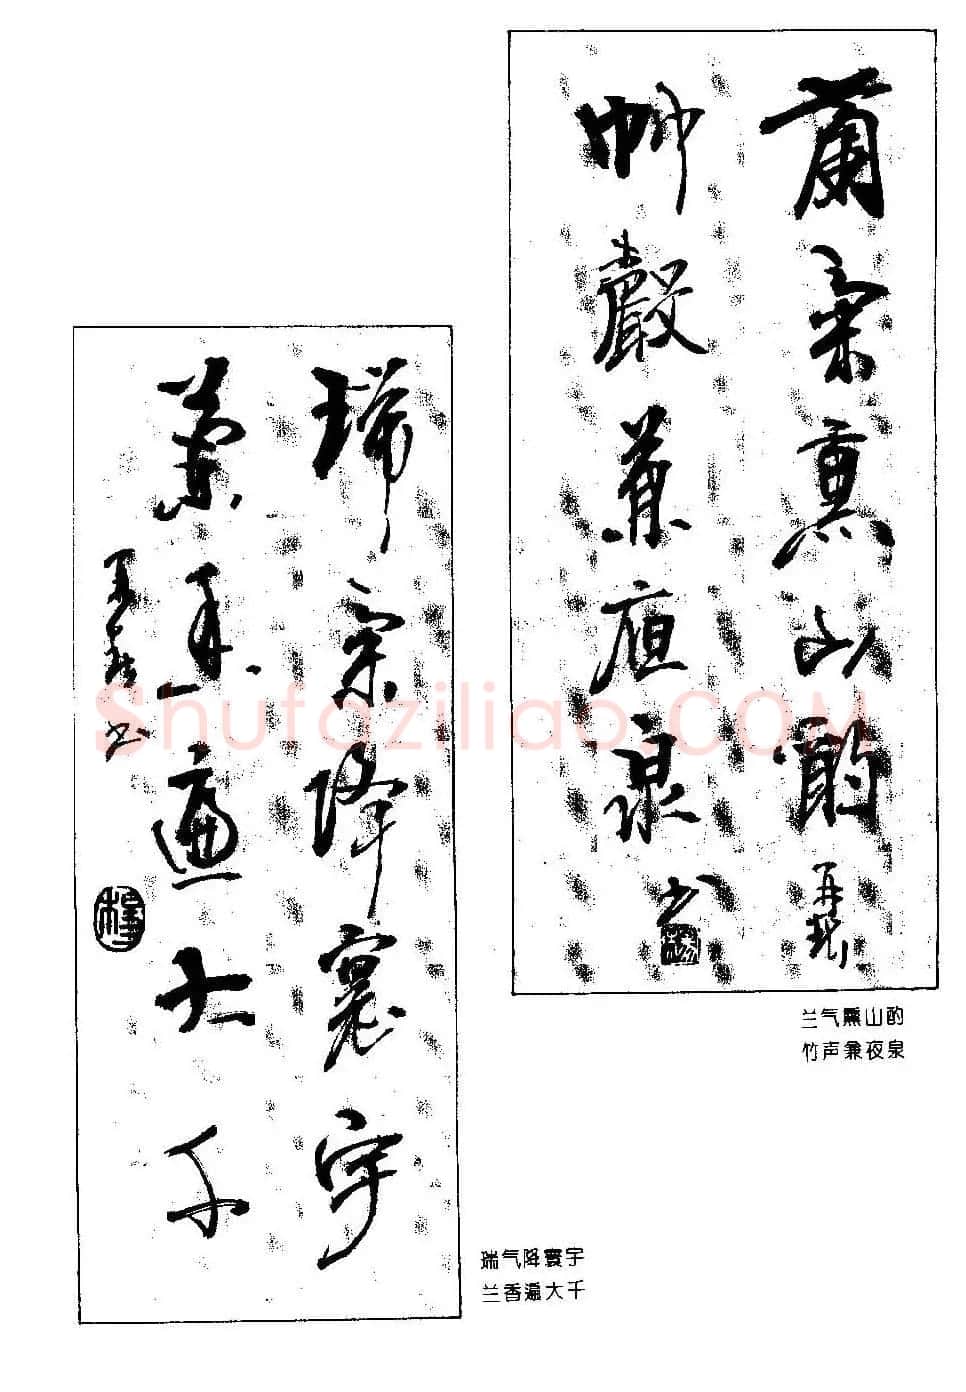 蘭氣熏山酌
竹聲兼夜泉
书
兰气熏山酌
竹声兼夜泉
瑞氣降寰宇
蘭香遍大千
书
瑞气降寰宇
兰香遍大千
Shufaziliao.COM